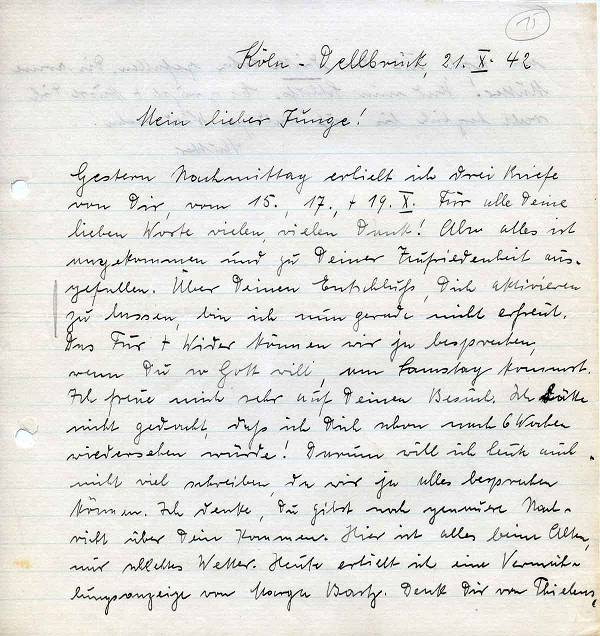 15
Köln-Dellbrück, 21. X. 42
Mein lieber Junge!
Gestern Nachmittag erhielt ich drei Briefe
von Dir, vom 15., 17., + 19. X. Für alle Deine
lieben Worte vielen, vielen Dank! Also alles ist
angekommen und zu Deiner Zufriedenheit aus-
gefallen. Über Deinen Entschluß, Dich aktivieren
zu lassen, bin ich nun gerade nicht erfreut.
Das Für + Wider können wir ja besprechen,
wenn Du so Gott will, am Samstag kommst.
Ich freue mich sehr auf Deinen Besuch. Ich hätte
nicht gedacht, daß ich Dich schon nach 6 Wochen
wiedersehen würde! Darum will ich heute auch
nicht viel schreiben, da wir ja alles besprechen
können. Ich denke, Du gibst noch genauere Nach-
richt über Dein Kommen. Hier ist alles beim Alten,
nur schlechtes Wetter. Heute erhielt ich eine Vermäh-
lungsanzeige von Marga Bartz. Denk Dir von Thielens,